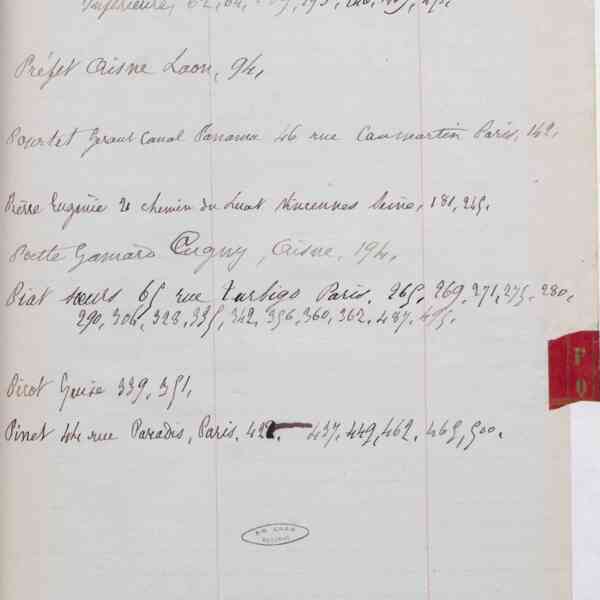 Préfet Aisne Laon, 94,
Pourtet Gérant Canal Panama 46 rue Caumartin Paris, 142,
Pierre Eugénie 2 chemin du Luat Vincennes Seine, 181, 245,
Poette Gamard Cugny, Aisne, 194,
Piat sœurs 65 rue Turbigo Paris, 265, 269, 271, 275, 280,
290, 306, 328, 335, 342, 356, 360, 362, 487, 495,
Picot Guise 339, 351,
Pinet 44 rue Paradis, Paris, 422, 437, 449, 462, 465, 500,
P
Q